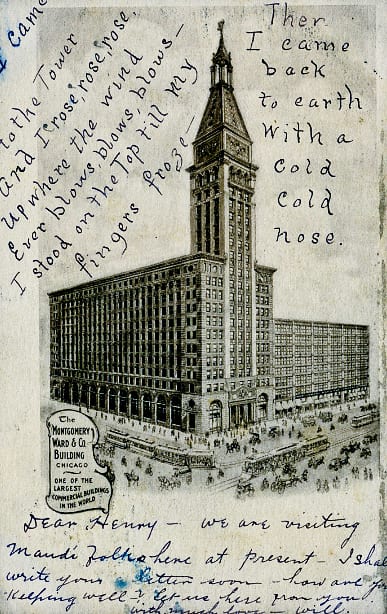 I came
to the Tower
And I rose, rose, rose,
Up where the wind
Ever blows, blows, blows—
I stood on the Top till my
fingers froze—
Then
I came
back
to earth
With a
Cold
Cold
nose.
The
MONTGOMERY
WARD & CO.
BUILDING
CHICAGO
ONE OF THE
LARGEST
COMMERCIAL BUILDINGS
IN THE WORLD
Dear Henry — we are visiting
Maude folks here at present — I shal
write you letter soon — how are
Keeping well? let us hear from you
with much love — will